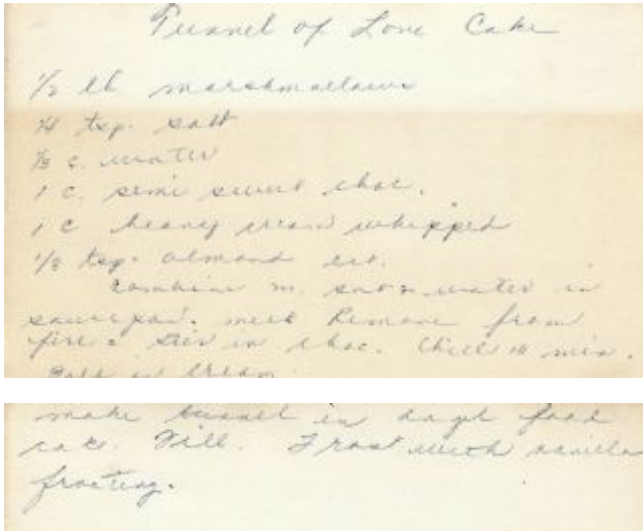 Tunnel of Love Cake
1/2 lb marshmallows
1/4 tsp. salt
1/3 c. water
1 c. semi sweet choc.
1 c heavy cream whipped
1/8 tsp. almond ext.
Combine m. salt & water in
saucepan. melt Remove from
fire & stir in choc. Chill 10 min.
Fold in Cream.
make tunnel in angel food
cake. Fill. Frost with vanilla
frosting.